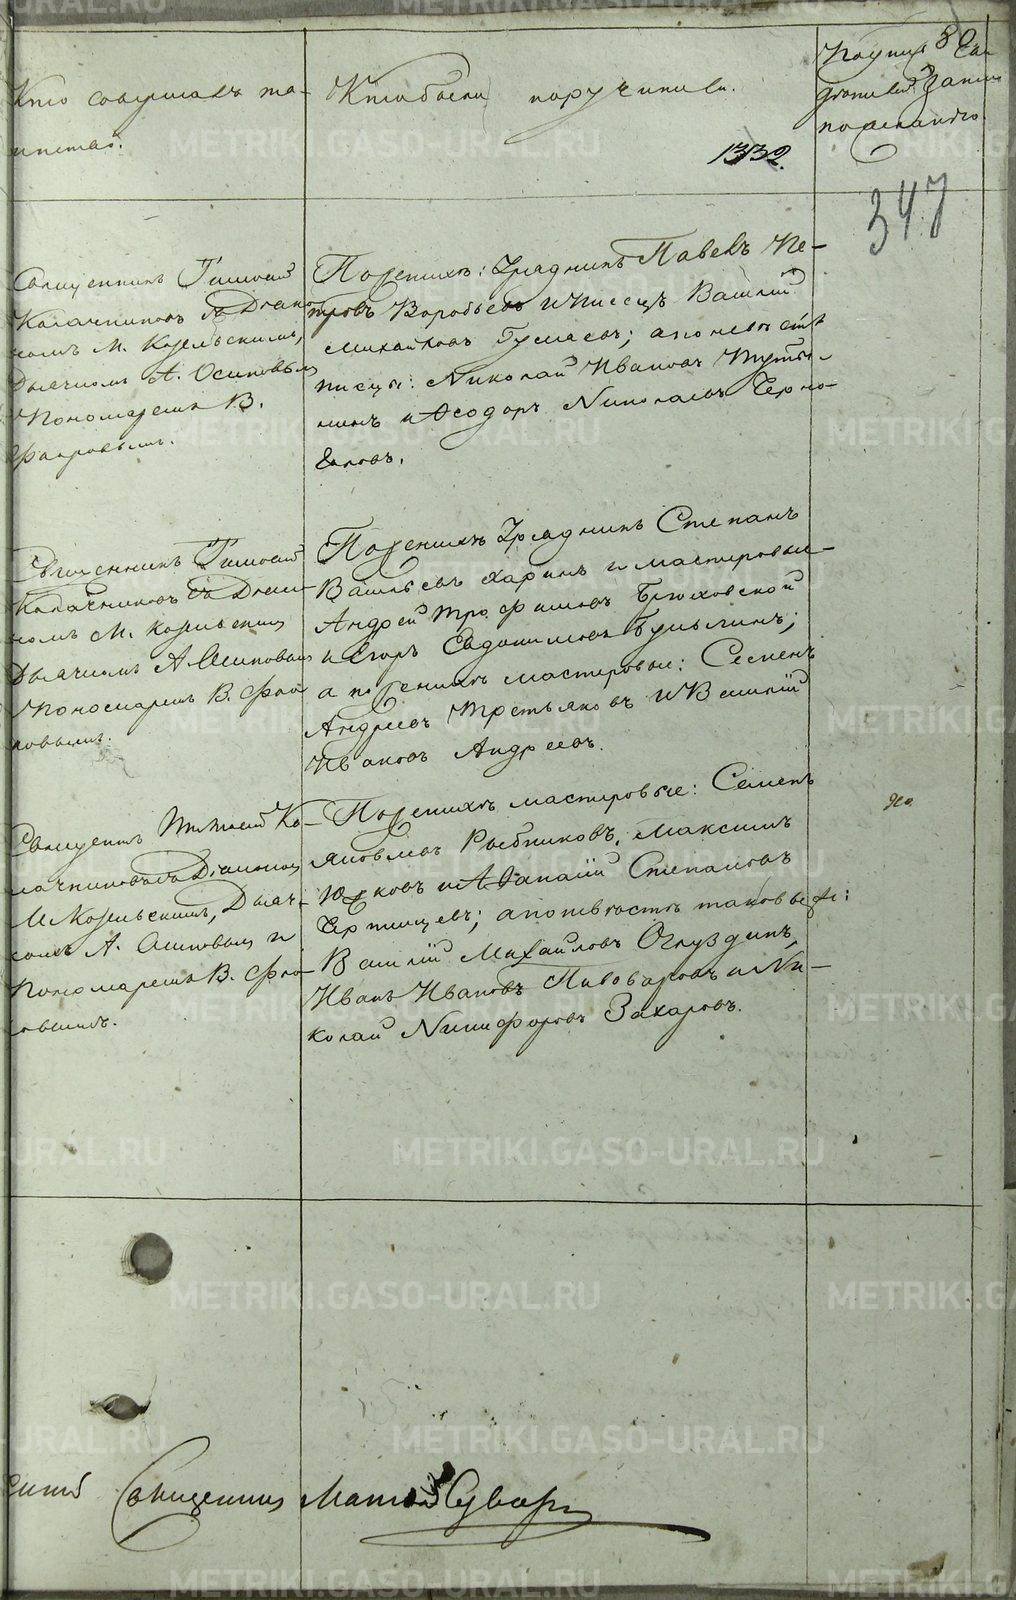 Кто совершалъ та-
инство.
Кто были поручители.
1332.
80
347
Священникъ Тимофей
Калачниковъ съ Діако
номъ М. Козельскимъ,
Дьячкомъ А. Осиповымъ
Пономаремъ В.
Флоровымъ.
По женихѣ: Урядникъ Павелъ Пе-
тровъ Воробьевъ и Писецъ Василій
Михайловъ; а по невѣстѣ
писцы: Николай Ивановъ
и Ѳеодоръ Николаевъ Черно-
Священникъ Тимофей
Калачниковъ съ Діако-
номъ М. Козельскимъ
Дьячкомъ А. Осиповымъ
Пономаремъ В. Фло
ровымъ.
По женихѣ Урядникъ Степанъ
Васильевъ Харинъ и мастеровые
Андрей Трофимовъ Брюховской
и Егоръ Евдокимовъ;
а по женихѣ мастеровые: Семенъ
Андреевъ Третьяковъ и Василій
Ивановъ Андреевъ.
Священникъ Тимофей Ка-
лачниковъ съ Діакономъ
М. Козельскимъ, Дьяч-
комъ А. Осиповымъ и
Пономаремъ В. Фло-
ровымъ.
По женихѣ мастеровые: Семенъ
Яковлевъ Рыбниковъ, Максимъ
и Афанасій Степановъ
а по невѣстѣ таковые же:
Василій Михайловъ Огнуздинъ,
Иванъ Ивановъ Пивоваровъ и Ни-
колай Никифоровъ Захаровъ.
Священникъ
METRIKI.GASO-URAL.RU